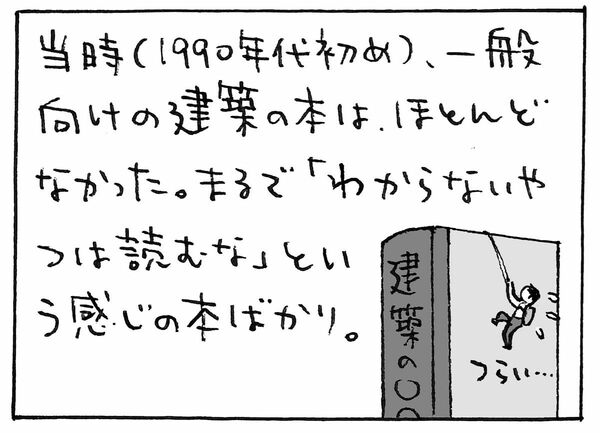 当時(1990年代初め)、一般
向けの建築の本は、ほとんど
なかった。まるで「わからないや
つは読むな」とい
う感じの本ばかり。
建築の〇〇
つらい…